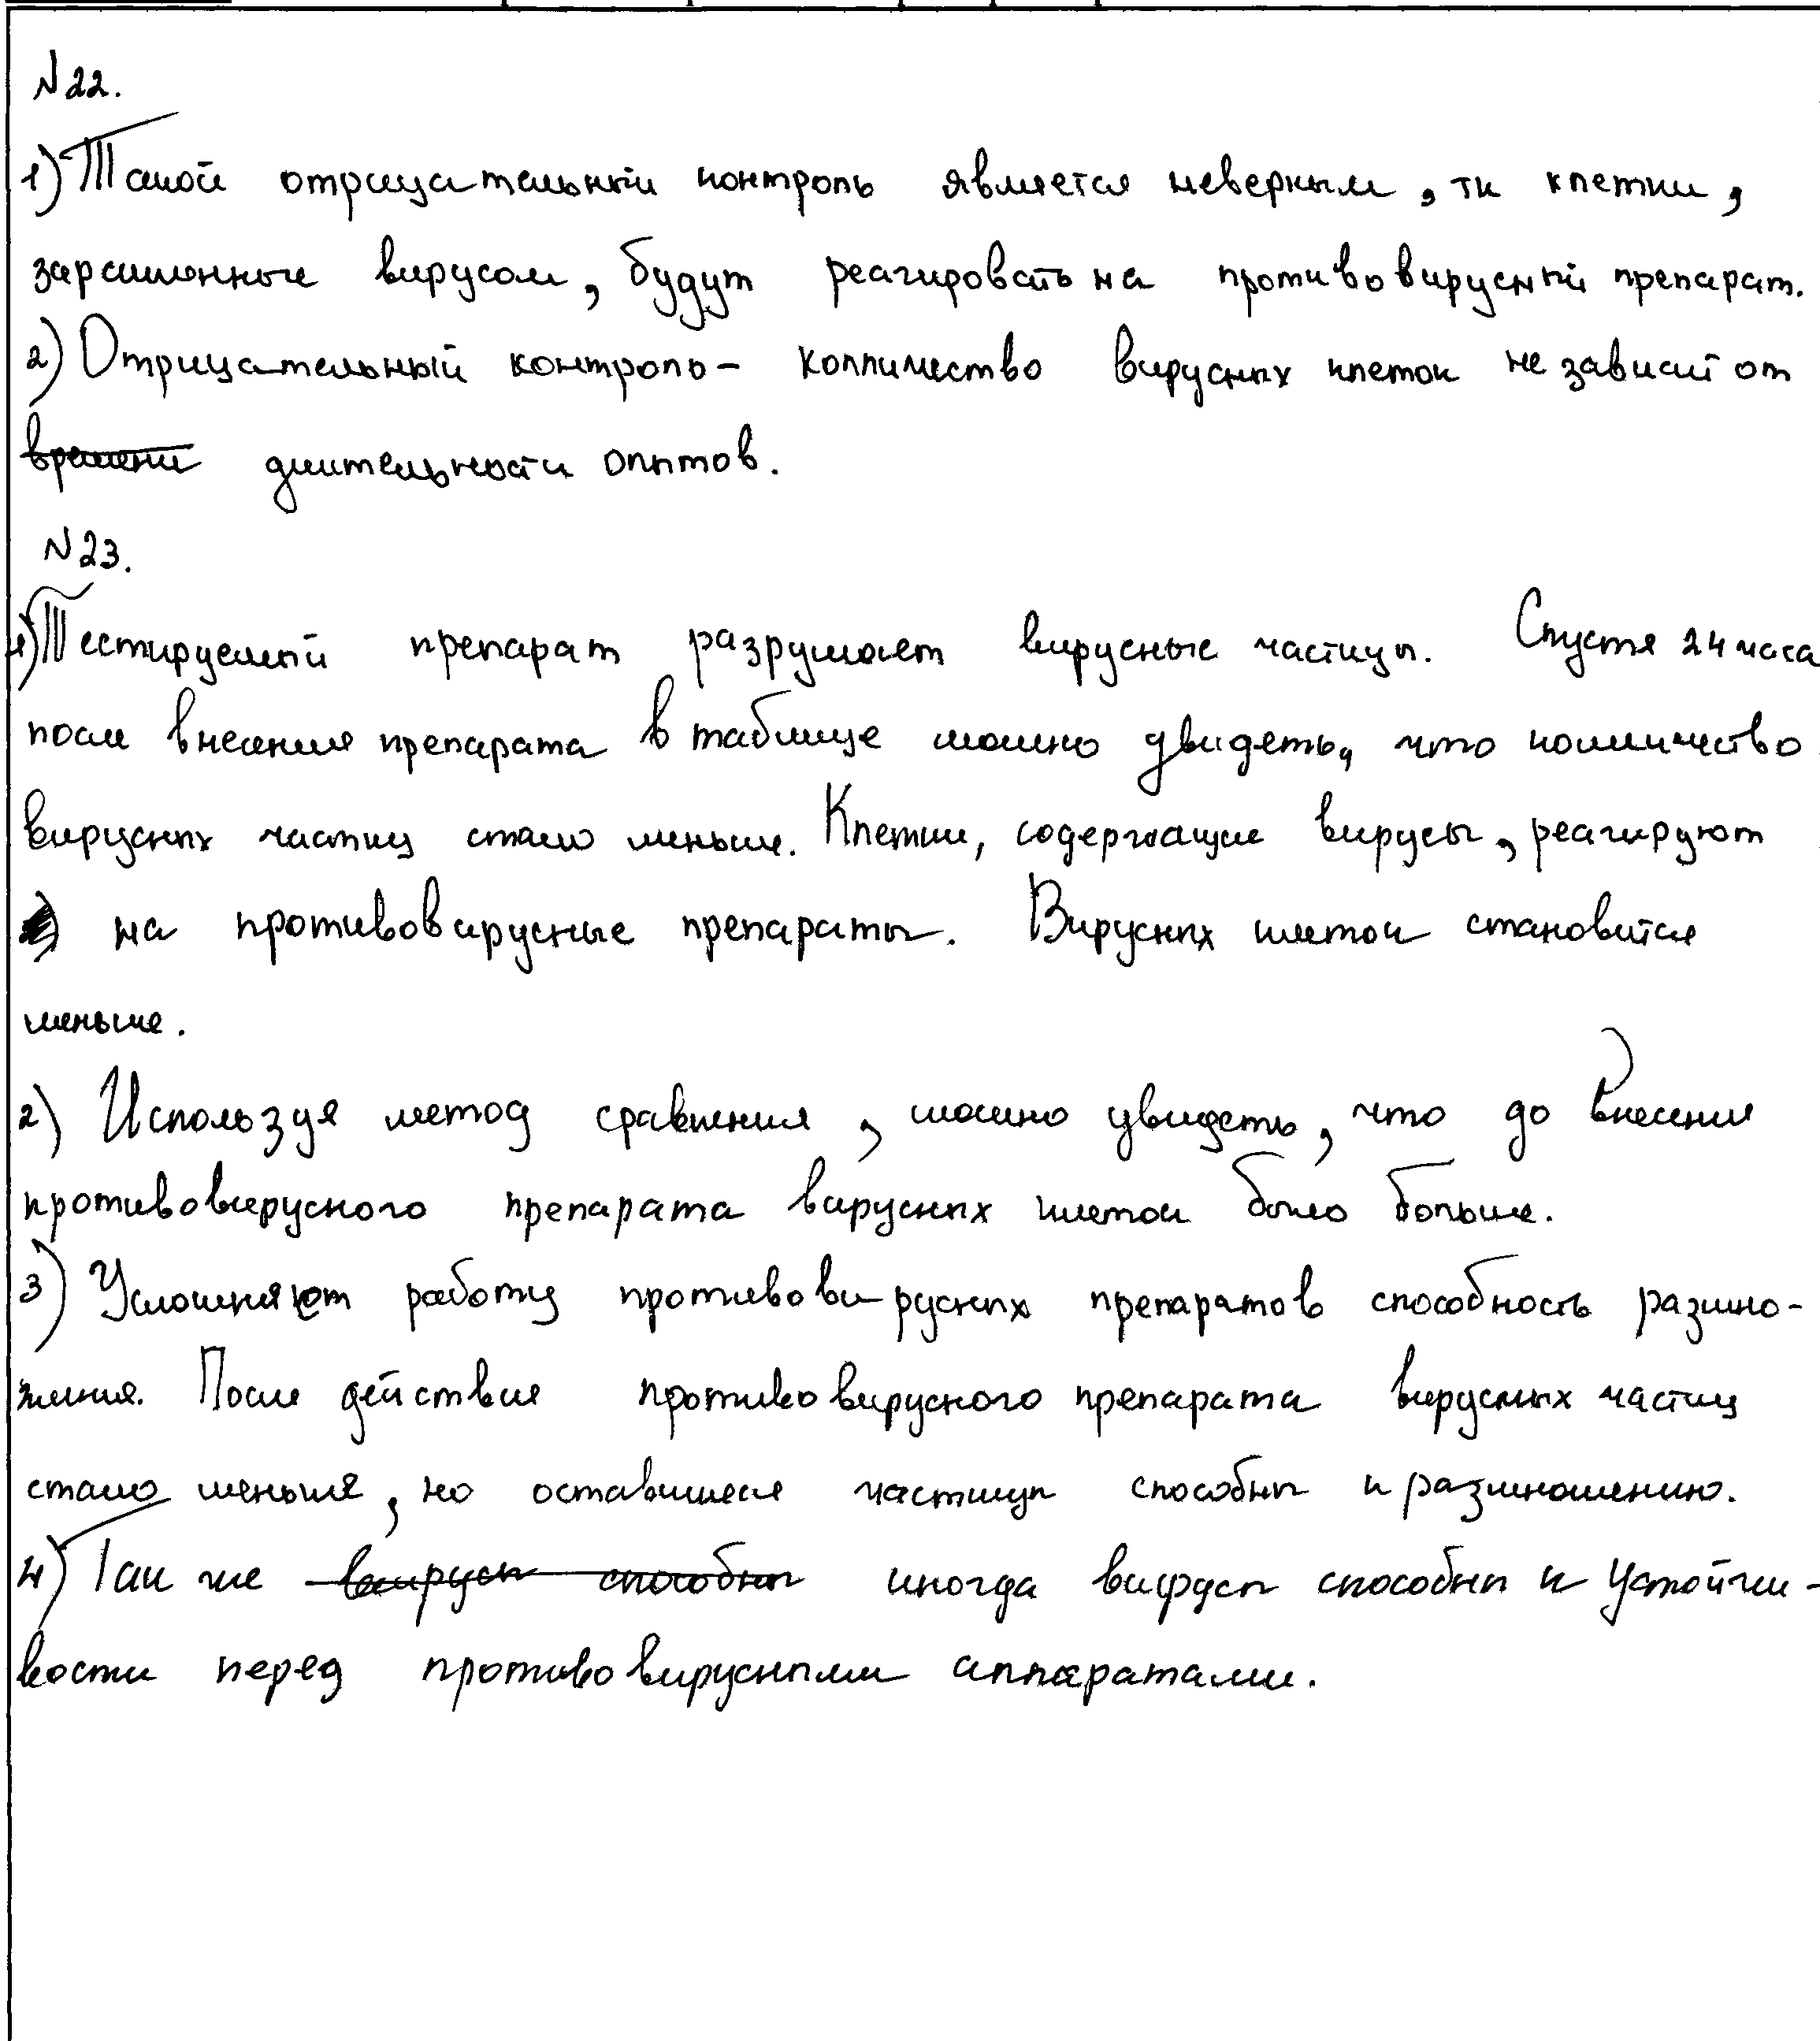 N22.
1) Такой отрицательный контроль является неверным, тк клетки,
зараженные вирусом, будут реагировать на противовирусный препарат.
2) Отрицательный контроль - колличество вирусных клеток не зависит от
времени длительности опытов.
N23.
1) Тестируемый препарат разрушает вирусные частицы. Спустя 24 часа
после внесения препарата в таблице можно увидеть, что колличество
вирусных частиц стало меньше. Клетки, содержащие вирусы, реагируют
на противовирусные препараты. Вирусных клеток становится
меньше.
2) Используя метод сравнения, можно увидеть, что до внесения
противовирусного препарата вирусных клеток было больше.
3) Усложняют работу противовирусных препаратов способность размно-
жения. После действия противовирусного препарата вирусных частиц
стало меньше, но оставшиеся частицы способны к размножению.
4) Так же вирусы способны иногда вирусы способны к устойчи-
вости перед противовирусными аппаратами.